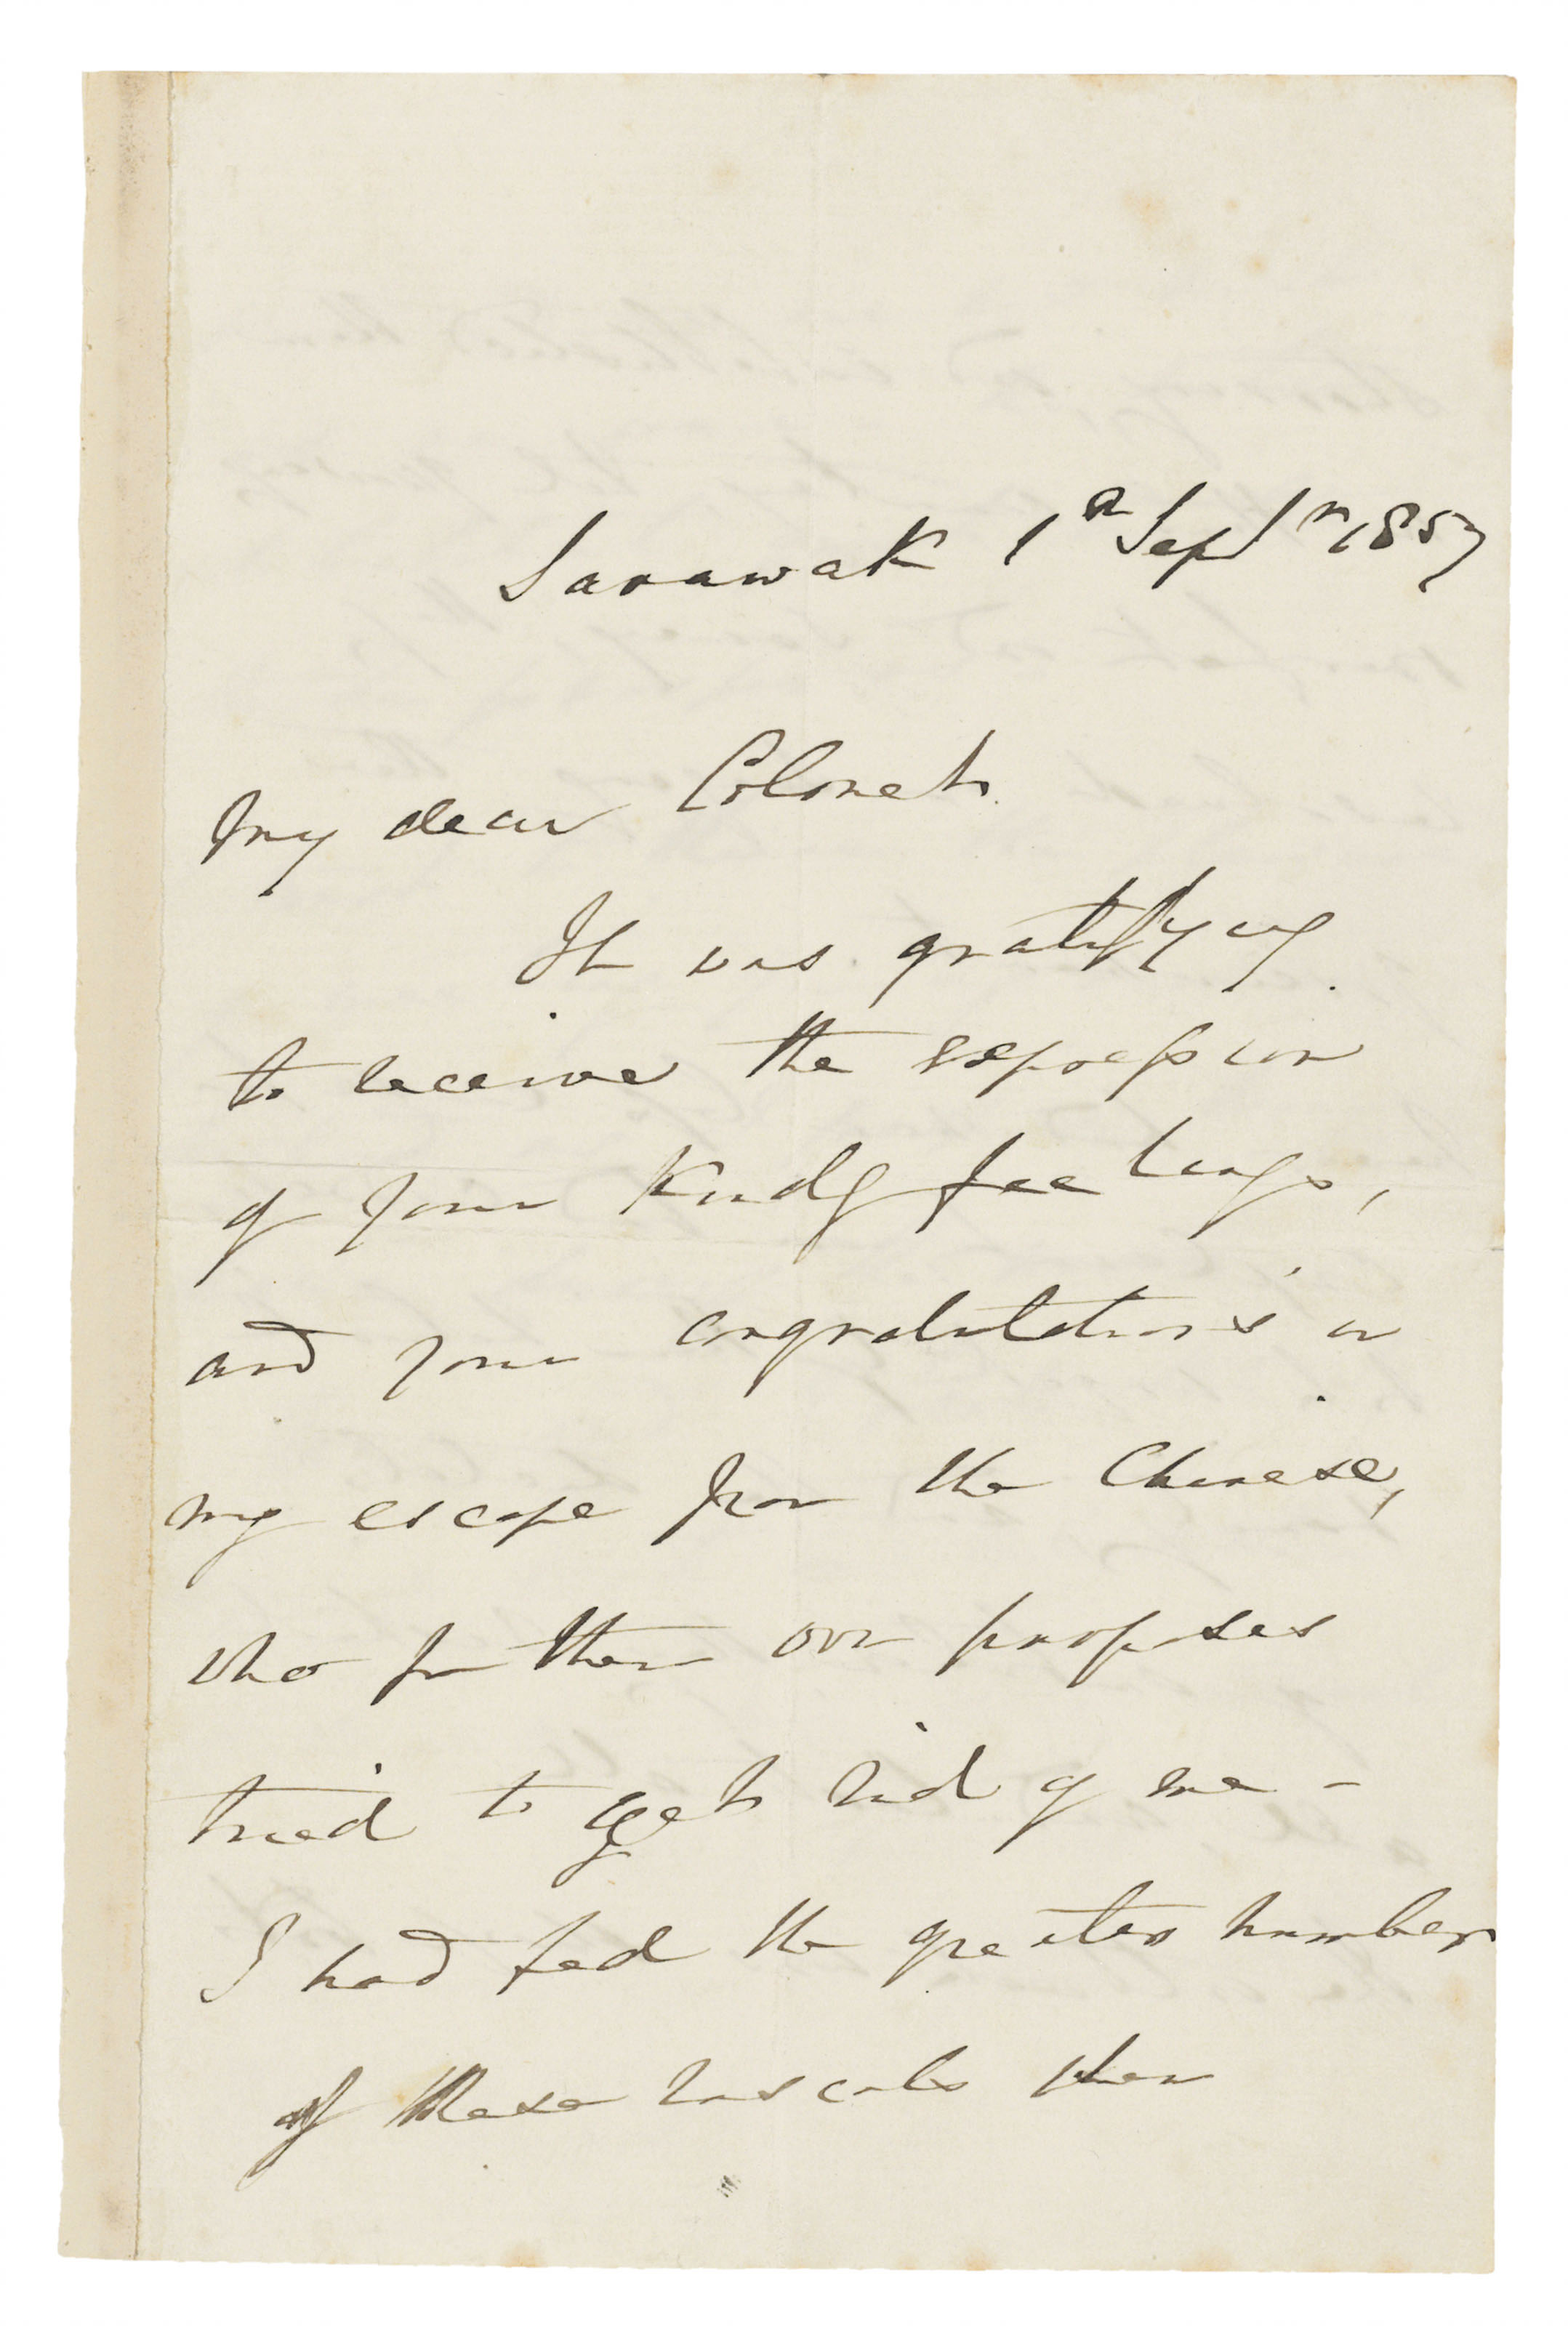 Sarawak 1st Septr 1857
My dear Colonel
It was gratifying
to receive the expression
of your kindly feelings,
and your congratulations on
my escape from the Chinese,
who for their own purposes
tried to get rid of me –
I had fed the greater number
of these rascals when